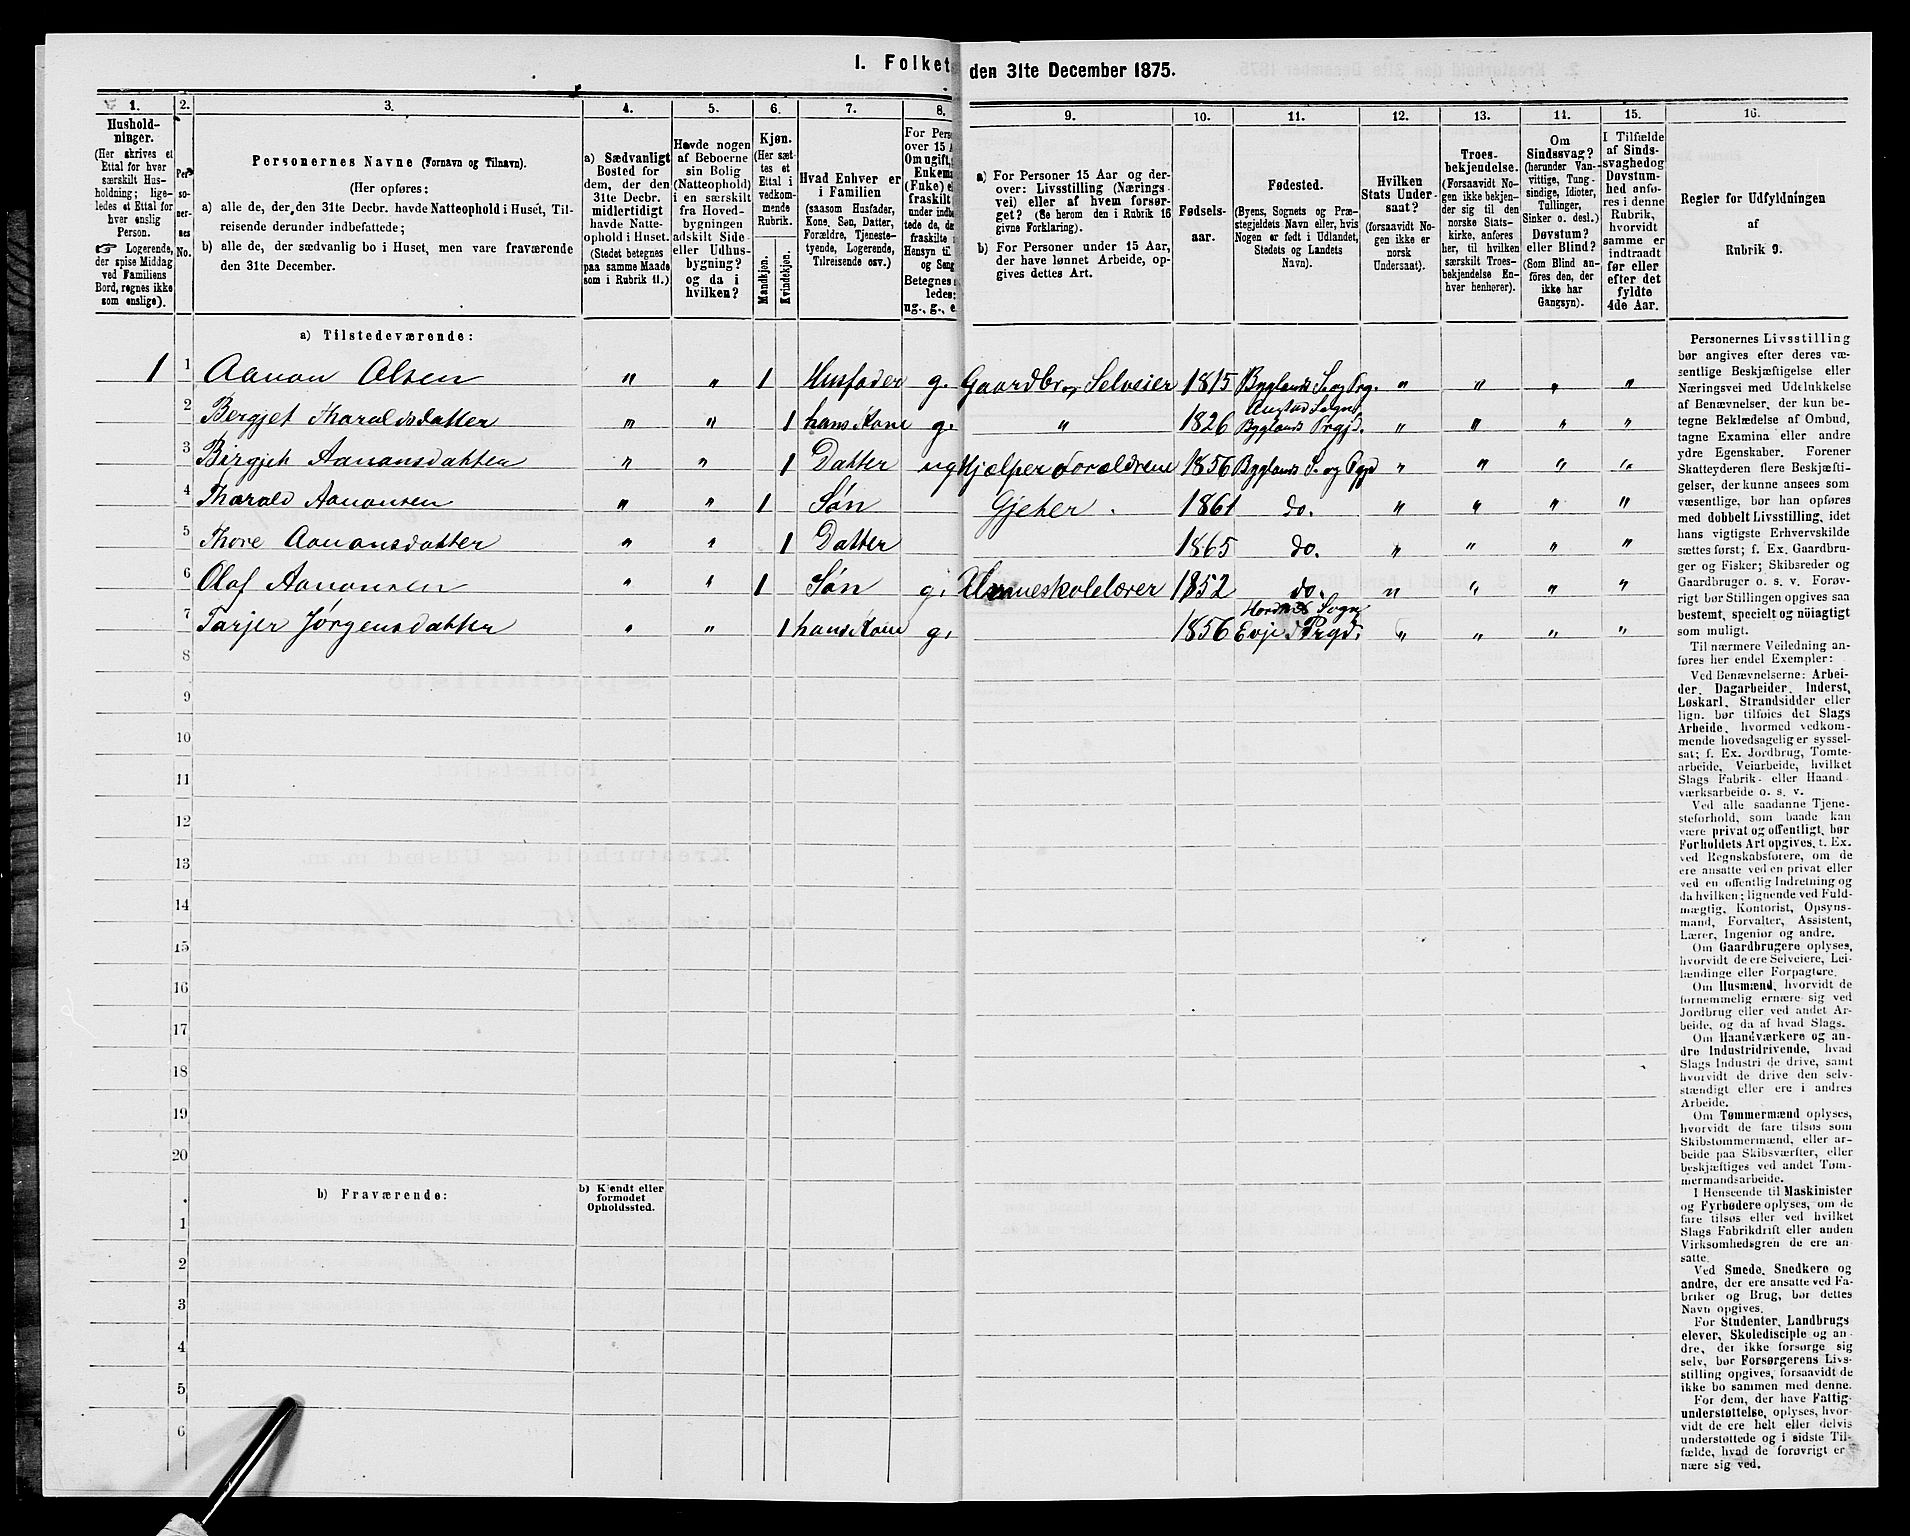 1. Folket den 31te December 1875.
1. 2. 3. 4. 5. 6. 7. 8. 9. 10. 11. 12. 13. 14. 15. 16.
Hushold-
ninger.
(Her skrives et
Ettal for hver
særskilt Hus-
holdning; lige-
ledes et Ettal for
hver enslig
Person.
☞ Logerende,
der spise Middag
ved Familiens
Bord, regnes ikke
som enslige).
Per-
so-
ner-
nes
No.
Personernes Navne (Fornavn og Tilnavn).
(Her opføres:
a) alle de, der den 31te Decbr. havde Natteophold i Huset, Til-
reisende derunder indbefattede;
b) alle de, der sædvanlig bo i Huset, men vare fraværende
den 31te December.
a) Sædvanligt
Bosted for
dem, der den
31te Decbr.
midlertidigt
havde Natte-
ophold i Huset.
(Stedet betegnes
paa samme Maade
som i Rubrik 11.)
Havde nogen
af Beboerne
sin Bolig
(Natteophold)
i en særskilt
fra Hoved-
bygningen
adskilt Side-
eller Udhus-
bygning?
og da i
hvilken?
Kjøn.
(Her sæt-
tes et
Ettal i
vedkom-
mende
Rubrik.
Mandkjøn.
Kvindekjøn.
Hvad Enhver er
i Familien
(saasom Husfader,
Kone, Søn, Datter,
Forældre, Tjeneste-
tyende, Logerende,
Tilreisende osv.)
For Pers
over 15 A
Om ugift,
Enkema
(Enke) e
fraskilt
under indb
tede de, d
fraskilte
Hensyn til
og Seng
Betegnes
ledes:
ug., g., e.
a) For Personer 15 Aar og der-
over: Livsstilling (Nærings-
vei) eller af hvem forsør-
get? (Se herom den i Rubrik 16
givne Forklaring).
b) For Personer under 15 Aar,
der have lønnet Arbeide, op-
gives dettes Art.
Fødsels-
aar.
Fødested.
(Byens, Sognets og Præ-
stegjeldets Navn eller, hvis
Nogen er født i Udlandet,
Stedets og Landets
Navn).
Hvilken
Stats Under-
saat?
(forsaavidt No-
gen ikke er
norsk
Undersaat).
Troes-
bekjendelse.
(Forsaavidt No-
gen ikke bekjen-
der sig til den
norske Stats-
kirke, anføres
her, til hvilken
særskilt Troes-
bekjendelse En-
hver henhører).
Om
Sindssvag?
(herunder Van-
vittige, Tung-
sindige, Idioter,
Tullinger,
Sinker o. desl.)
Døvstum?
eller Blind?
(Som Blind an-
føres den, der
ikke har
Gangsyn).
I Tilfælde
af Sinds-
svaghed og
Døvstum-
hed anfø-
res i denne
Rubrik,
hvorvidt
samme er
indtraadt
før eller
efter det
fyldte
4de Aar.
Regler for Udfyldningen
af
Rubrik 9.
a) Tilstedeværende:
1 1 Aanon Olsen " " 1 Husfader g. Gaardbr. og Selveier 1815 Byglands S. og Prg. " " " "
2 Bergjet Tharaldsdatter " " 1 hans Kone g. " 1826 Austad Sogn Byglands Prgjd. " " " "
3 Birgjet Aanonsdatter " " 1 Datter ug Hjælper Forældrene 1856 Byglands S. og Pgjd " " " "
4 Tharald Aanonsen " " 1 Søn Gjeter 1861 do. " " " "
5 Thore Aanonsdatter " " 1 Datter 1865 do. " " " "
6 Olaf Aanonsen " " 1 Søn g. Almueskolelærer 1852 do. " " " "
7 Tarjer Jørgensdatter " " 1 hans Kone g. 1856 Hordnes Sogn Evje Prgd. " " " "
8
9
10
11
12
13
14
15
16
17
18
19
20
b) Fraværende:
b) Kjendt eller
formodet
Opholdssted.
1
2
3
4
5
6
Personernes Livsstilling
bør angives efter deres væ-
sentlige Beskjæftigelse eller
Næringsvei med Udelukkelse
af Benævnelser, der kun be-
tegne Beklædelse af Ombud,
tagne Examina eller andre
ydre Egenskaber. Forener
Skatteyderen flere Beskjæfti-
gelser, der kunne ansees som
væsentlige, bør han opføres
med dobbelt Livsstilling, idet
hans vigtigste Erhvervskilde
sættes først; f. Ex. Gaardbru-
ger og Fisker; Skibsreder og
Gaardbruger o. s. v. Forøv-
rigt bør Stillingen opgives saa
bestemt, specielt og nøiagtigt
som muligt.
Til nærmere Veiledning an-
føres her endel Exempler:
Ved Benævnelserne: Arbei-
der, Dagarbeider, Inderst,
Løskarl, Strandsidder eller
lign. bør tilføies det Slags
Arbeide, hvormed vedkom-
mende hovedsagelig er syssel-
sat; f. Ex. Jordbrug, Tomte-
arbeide, Veiarbeide, hvilket
Slags Fabrik- eller Haand-
værksarbeide o. s. v.
Ved alle saadanne Tjene-
steforhold, som baade kan
være privat og offentligt, bør
Forholdets Art opgives, t. Ex.
ved Regnskabsførere, om de
ere ansatte ved en privat eller
ved en offentlig Indretning og
da hvilken; lignende ved Fuld-
mægtig, Kontorist, Opsyns-
mand, Forvalter, Assistent,
Lærer, Ingeniør og andre.
Om Gaardbrugere oplyses,
hvorvidt de ere Selveiere, Lei-
lændinge eller Forpagtere.
Om Husmænd, hvorvidt de
fornemmelig ernære sig ved
Jordbrug eller ved andet Ar-
beide, og da af hvad Slags.
Om Haandværkere og an-
dre Industridrivende, hvad
Slags Industri de drive, samt
hvorvidt de drive den selv-
stændigt eller ere i andres
Arbeide.
Om Tømmermænd oplyses,
hvorvidt de fare tilsøs som
Skibstømmermænd, eller ar-
beide paa Skibsværfter, eller
beskjæftiges ved andet Tøm-
mermandsarbeide.
I Henseende til Maskinister
og Fyrbødere oplyses, om de
fare tilsøs eller ved hvilket
Slags Fabrikdrift eller anden
Virksomhedsgren de ere an-
satte.
Ved Smede, Snedkere og
andre, der ere ansatte ved Fa-
briker og Brug, bør dettes
Navn opgives.
For Studenter, Landbrugs-
elever, Skoledisciple og an-
dre, der ikke forsørge sig
selv, bør Forsørgerens Livs-
stilling opgives, forsaavidt de
ikke bo sammen med denne.
For dem, der have Fattig-
understøttelse, oplyses, hvor-
vidt de ere helt eller delvis
understøttede og i sidste Til-
fælde, hvad de forøvrigt er-
nære sig ved.